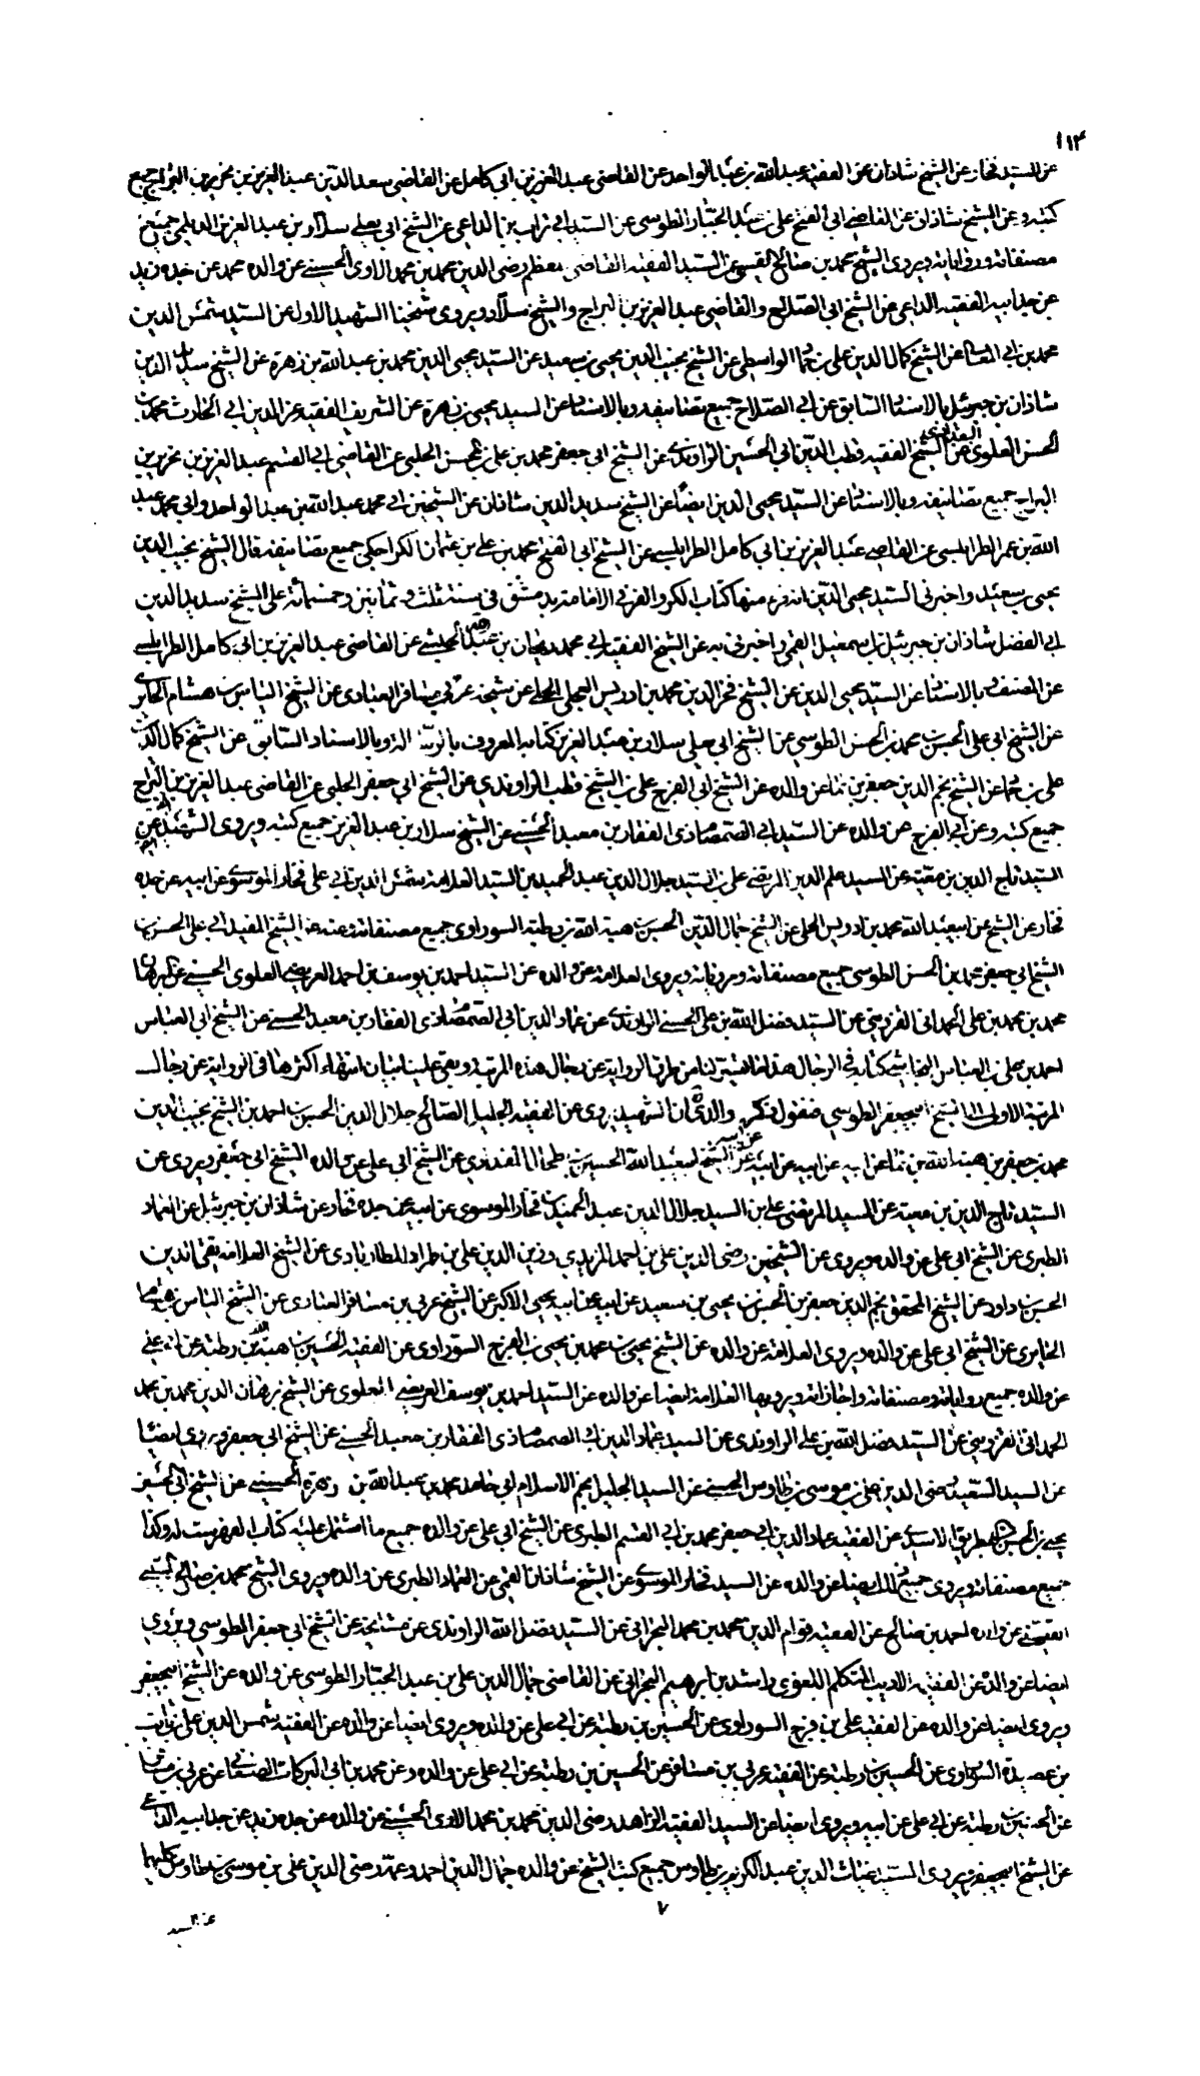 ١١٣
عن السيد فخار عن الشيخ شاذان عن الفقيه عبد الله بن عبد الواحد عن القاضي عبد العزيز بن ابي كامل عن القاضي سعد الدين عبد العزيز بن نحرير بن البراج جميع
كتبه وعن الشيخ شاذان عن القاضي ابي الفتح علي بن عبد الجبار الطوسي عن السيد ابي تراب بن الداعي عن الشيخ ابي يعلى سلار بن عبد العزيز الديلمي جميع
مصنفاته ورواياته ويروي الشيخ محمد بن صالح القسيني عن السيد الفقيه القاضي معظم رضي الدين محمد بن محمد الاوي الحسيني عن والده محمد عن جده زيد
عن جد ابيه الفقيه الداعي عن الشيخ ابي الصلاح والقاضي عبد العزيز بن البراج والشيخ سلار ويروي شيخنا الشهيد الاول عن السيد شمس الدين
محمد بن ابي المعالي عن الشيخ كمال الدين علي بن حماد الواسطي عن الشيخ نجيب الدين يحيى بن سعيد عن السيد محيي الدين محمد بن عبد الله بن زهرة عن الشيخ سديد الدين
شاذان بن جبرئيل بالاسناد السابق عن ابي الصلاح جميع تصانيفه وبالاسناد عن السيد محيي بن زهرة عن الشريف الفقيه عز الدين ابي الحارث محمد بن
الحسن العلوي عن الشيخ الفقيه قطب الدين ابي الحسين الراوندي عن الشيخ ابي جعفر محمد بن علي بن المحسن الحلبي عن القاضي ابي القسم عبد العزيز بن نحرير بن
البراج جميع تصانيفه وبالاسناد عن السيد محيي الدين ايضا عن الشيخ سديد الدين شاذان عن الشيخين ابي محمد عبد الله بن عبد الواحد وابي محمد عبد
الله بن عمر الطرابلسي عن القاضي عبد العزيز بن ابي كامل الطرابلسي عن الشيخ ابي الفتح محمد بن علي بن عثمان الكراجكي جميع تصانيفه قال الشيخ نجيب الدين
يحيى بن سعيد واخبرني السيد محيي الدين انه قرء منها كتاب الكر والفر في الامامة بدمشق في سنة ثلث وثمانين وخمسمائة على الشيخ سديد الدين
ابي الفضل شاذان بن جبرئيل بن اسمعيل القمي واخبرني به عن الشيخ الفقيه ابي محمد ريحان بن عبد الله الحبشي عن القاضي عبد العزيز بن ابي كامل الطرابلسي
عن المصنف وبالاسناد عن السيد محيي الدين عن الشيخ فخر الدين محمد بن ادريس العجلي الحلي عن شيخه عربي بن مسافر العبادي عن الشيخ الياس بن هشام الحائري
عن الشيخ ابي علي الحسن بن محمد بن الحسن الطوسي عن الشيخ ابي يعلى سلار بن عبد العزيز كتابه المعروف بالرسالة وبالاسناد السابق عن الشيخ كمال الدين
علي بن حماد عن الشيخ نجم الدين جعفر بن نما عن والده عن الشيخ ابي الفرج علي بن الشيخ قطب الراوندي عن الشيخ ابي جعفر الحلبي عن القاضي عبد العزيز بن البراج
جميع كتبه وعن ابي الفرج عن والده عن السيد ابي الصمصام ذي الفقار بن معبد الحسني عن الشيخ سلار بن عبد العزيز جميع كتبه ويروي الشهيد عن
السيد تاج الدين بن معية عن السيد علم الدين المرتضى علي بن السيد جلال الدين عبد الحميد بن السيد العلامة شمس الدين ابي علي فخار الموسوي عن ابيه عن جده
فخار عن الشيخ عن ابي عبد الله محمد بن ادريس الحلي عن الشيخ جمال الدين الحسين بن هبة الله بن رطبة السوراوي جميع مصنفاته وعنه عن الشيخ المفيد ابي علي الحسن بن
الشيخ ابي جعفر محمد بن الحسن الطوسي جميع مصنفاته ومروياته ويروي العلامة عن والده عن السيد احمد بن يوسف بن احمد العريضي العلوي الحسيني عن البرهان
محمد بن محمد بن علي الحمداني القزويني عن السيد فضل الله بن علي الحسيني الراوندي عن عماد الدين ابي الصمصام ذي الفقار بن معبد الحسني عن الشيخ ابي العباس
احمد بن علي بن العباس النجاشي كتابه في الرجال هذا ما تيسر لنا من طرق الرواية عن رجال هذه المرتبة وبقي علينا بيان انتهاء اكثرها في الرواية عن رجال
المرتبة الاولى الى الشيخ ابي جعفر الطوسي فنقول ذكر والدي ان الشهيد يروي عن الفقيه الجليل الصالح جلال الدين الحسن بن احمد بن الشيخ نجيب الدين
محمد بن جعفر بن هبة الله بن نما عن ابيه عن ابيه عن ابيه عن الشيخ ابي عبد الله الحسين بن طحال المقدادي عن الشيخ ابي علي عن والده الشيخ ابي جعفر ويروي عن
السيد تاج الدين بن معية عن السيد المرتضى علي بن السيد جلال الدين عبد الحميد بن فخار الموسوي عن ابيه عن جده فخار عن شاذان بن جبرئيل عن العماد
الطبري عن الشيخ ابي علي عن والده ويروي عن الشيخين رضي الدين علي بن احمد المزيدي وزين الدين علي بن طراد المطارابادي عن الشيخ العلامة تقي الدين
الحسن بن داود عن الشيخ المحقق نجم الدين جعفر بن الحسن بن يحيى بن سعيد عن ابيه عن ابيه يحيى الاكبر عن الشيخ عربي بن مسافر العبادي عن الشيخ الياس بن هشام
الحايري عن الشيخ ابي علي عن والده ويروي العلامة عن والده عن الشيخ يحيى بن محمد بن يحيى بن الفرج السوراوي عن الفقيه الحسين بن هبة الله بن رطبة عن ابي علي
عن والده جميع رواياته ومصنفاته واجازاته ويرويها العلامة ايضا عن والده عن السيد احمد بن يوسف العريضي العلوي عن الشيخ برهان الدين محمد بن محمد
الحمداني القزويني عن السيد فضل الله بن علي الراوندي عن السيد عماد الدين ابي الصمصام ذي الفقار بن معبد الحسني عن الشيخ ابي جعفر ويروي ايضا
عن السيد السعيد رضي الدين علي بن موسى بن طاوس الحسني عن السيد الجليل نجم الاسلام ابي حامد محمد بن عبد الله بن زهرة الحسيني عن الشيخ ابي الحسين
يحيى بن الحسن البطريق الاسدي عن الفقيه عماد الدين ابي جعفر محمد بن ابي القسم الطبري عن الشيخ ابي علي عن والده جميع ما اشتمل عليه كتاب الفهرست له وكذا
جميع مصنفاته ويروي جميع ذلك ايضا عن والده عن السيد فخار الموسوي عن الشيخ شاذان القمي عن العماد الطبري عن والده ويروي الشيخ محمد بن صالح
القسيني عن والده احمد بن صالح عن الفقيه قوام الدين محمد بن محمد البحراني عن السيد فضل الله الراوندي عن مشايخه عن الشيخ ابي جعفر الطوسي ويروي
ايضا عن والده عن الفقيه الاديب المتكلم اللغوي راشد بن ابرهيم البحراني عن القاضي جمال الدين علي بن عبد الجبار الطوسي عن والده عن الشيخ ابي جعفر
ويروي ايضا عن والده عن الفقيه علي بن فرج السوراوي عن الحسين بن رطبة عن ابي علي عن والده ويروي ايضا عن والده عن الفقيه شمس الدين علي بن ثابت
بن عصيدة السوراوي عن الحسين بن رطبة وعن الفقيه عربي بن مسافر عن الحسين بن رطبة عن ابي علي عن والده وعن محمد بن ابي البركات الصنعاني عن عربي بن مسافر
عن الحسين بن رطبة عن ابي علي عن ابيه ويروي ايضا عن السيد الفقيه الزاهد رضي الدين محمد بن محمد الاوي الحسيني عن والده عن جده زيد عن جد ابيه الداعي
عن الشيخ ابي جعفر ويروي السيد غياث الدين عبد الكريم بن طاوس جميع كتب الشيخ عن والده جمال الدين احمد وعمه رضي الدين علي بن موسى بن طاوس كليهما
٧
عن السيد